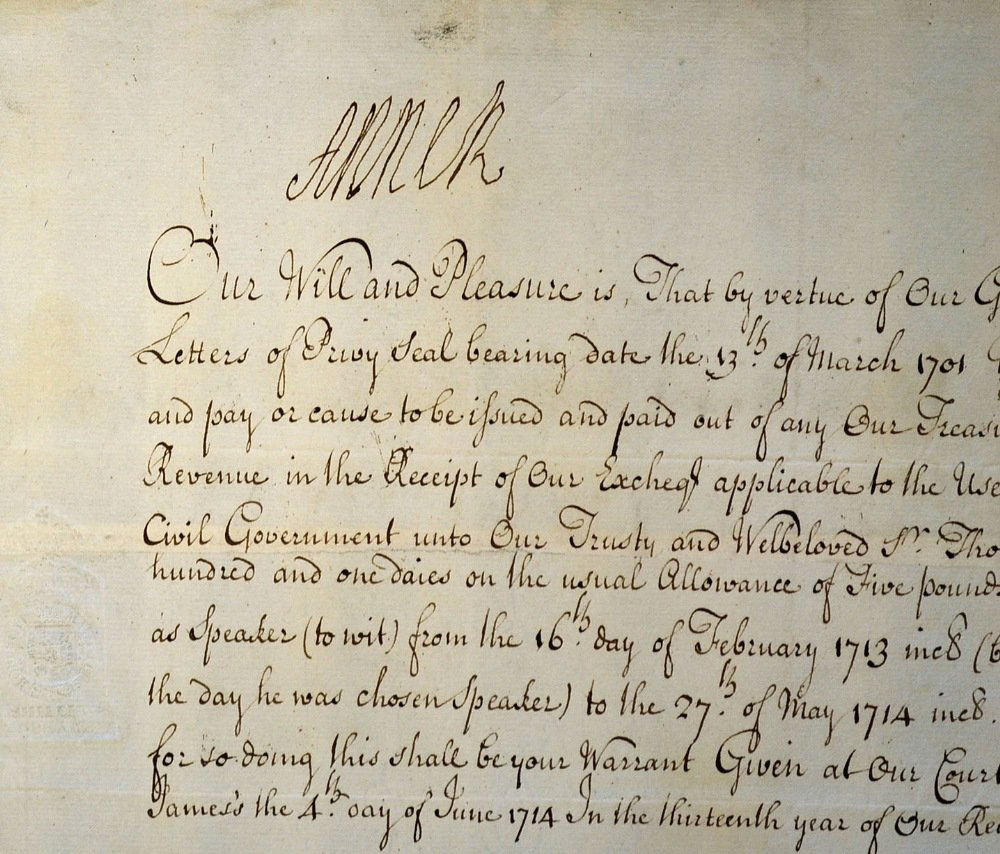 ANNE R
Our Will and Pleasure is, That by vertue of Our G
Letters of Privy Seal bearing date the 13th. of March 1701
and pay or cause to be issued and paid out of any Our Treasu
Revenue in the Receipt of Our Excheqr applicable to the Use
Civil Government unto Our Trusty and Welbeloved Sr. Tho
hundred and one daies on the usual Allowance of Five pounds
as Speaker (to wit) from the 16th. day of February 1713 incl (b
the day he was chosen Speaker) to the 27th. of May 1714 incl.
for so doing this shall be your Warrant Given at Our Court
James's the 4th. day of June 1714 In the thirteenth year of Our Re